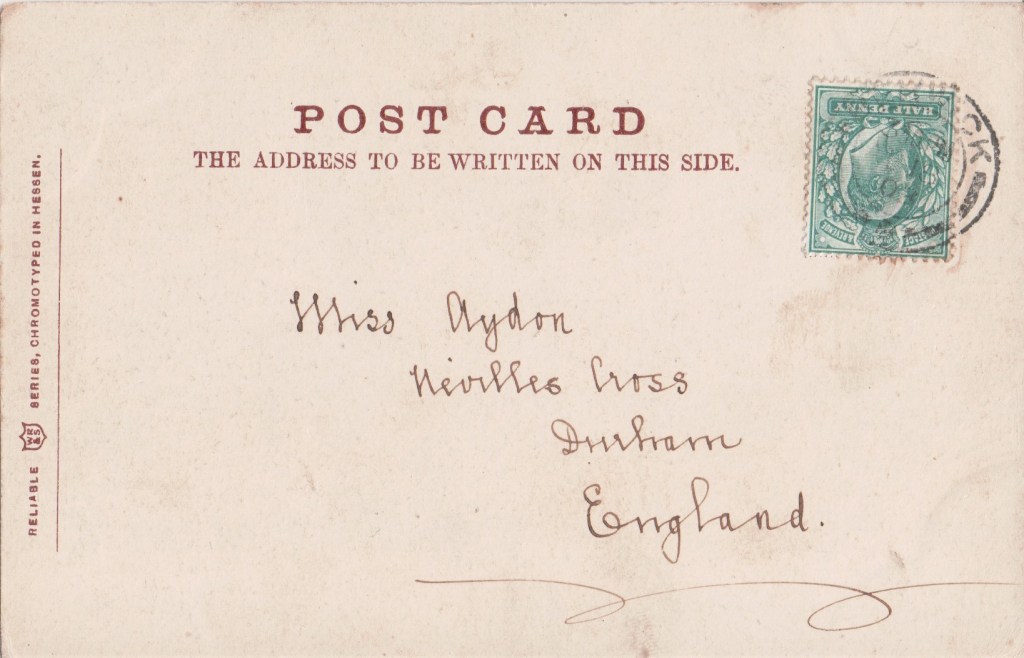 POST CARD
THE ADDRESS TO BE WRITTEN ON THIS SIDE.
HALF PENNY
POSTAGE & REVENUE
Miss Aydon
Nevilles Cross
Durham
England.
RELIABLE WR&S SERIES, CHROMOTYPED IN HESSEN.